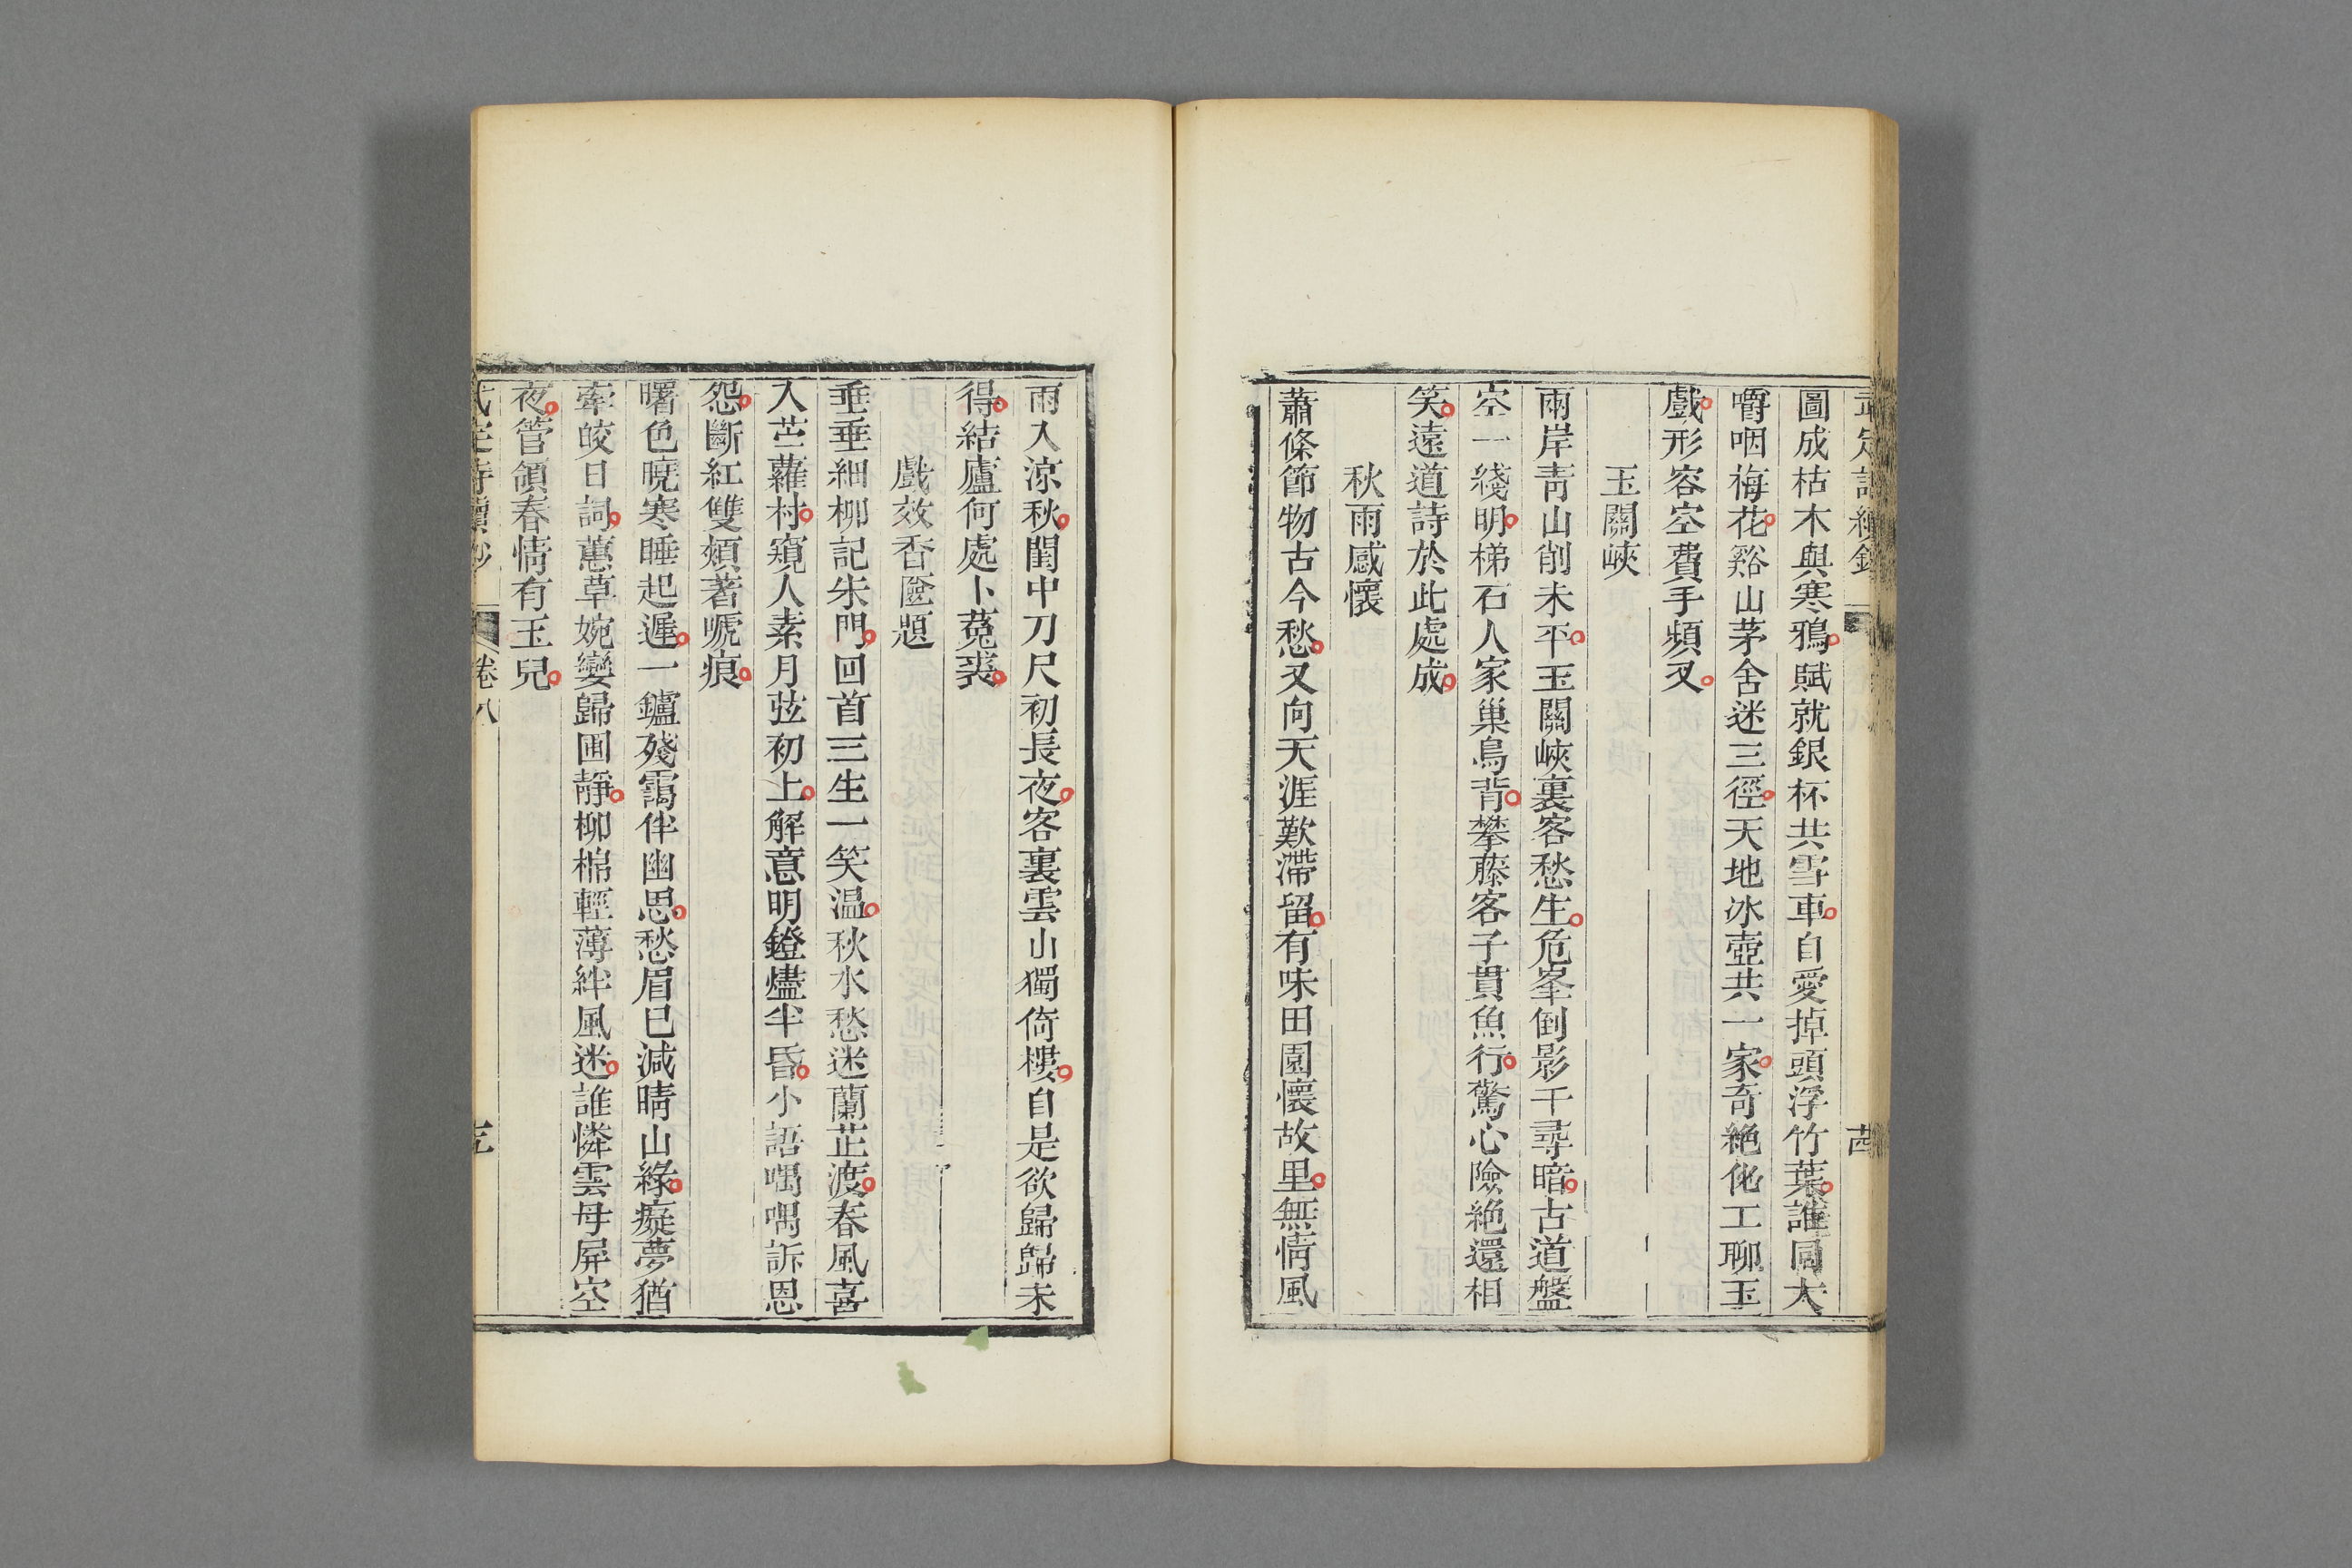 武定詩續鈔
茜
圖成枯木與寒鴉賦就銀杯共雪車自愛掉頭浮竹葉誰同大
嚼咽梅花谿山茅舍迷三徑天地冰壺共一家奇絶化工聊玉
戲形容空費手頻叉
玉關峽
兩岸靑山削未平玉關峽裏客愁生危峯倒影千尋暗古道盤
空一綫明梯石人家巢鳥背攀藤客子貫魚行驚心險絶還相
笑遠道詩於此處成
秋雨感懷
蕭條節物古今愁又向天涯歎滯留有味田園懷故里無情風
雨入涼秋閨中刀尺初長夜客裏雲山獨倚樓自是欲歸歸未
得結廬何處卜菟裘
戲效香匳題
垂垂細柳記朱門回首三生一笑温秋水愁迷蘭芷渡春風喜
入苎蘿村窺人素月弦初上解意明鐙燼半昏小語喁喁訴恩
怨斷紅雙頰著嗁痕
曙色曉寒睡起遲一鑪殘靄伴幽思愁眉已減晴山綠癡夢猶
牽皎日詞蕙草婉孌歸圃靜柳棉輕薄絆風迷誰憐雲母屏空
夜管領春情有玉兒
武定詩續鈔
卷八